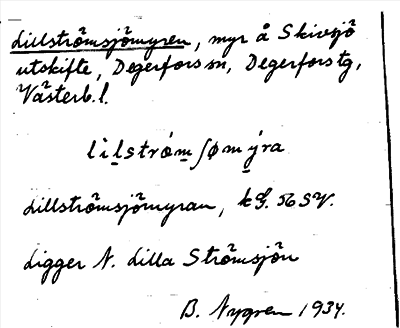 Lillströmsjömyren, myr å Skivsjö
utskifte, Degerfors sn, Degerfors tg,
Västerb. l.
lìlstróm ʃøm ýra
Lillströmsjömyran, kG. 56 SV.
Ligger N. Lilla Strömsjön
B. Nygren 1934.